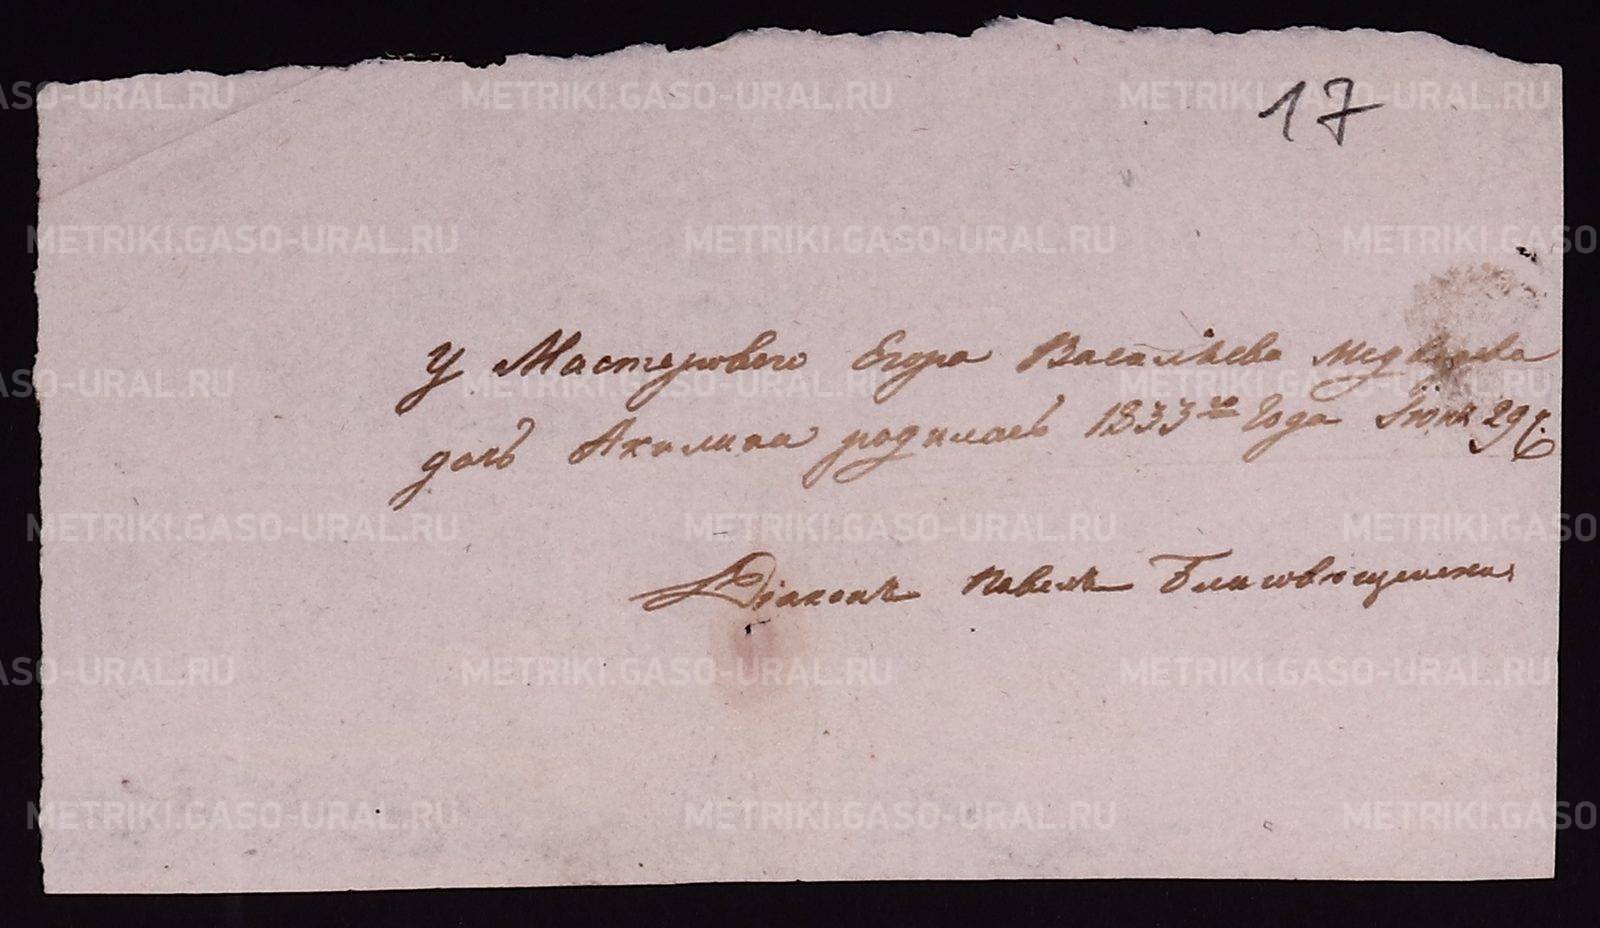 17
У Мастероваго Егора Васильева Медведева
дочь Акилина родилась 1833го Года Июня 29 ч.
Діаконъ Павелъ Благовѣщенскій
METRIKI.GASO-URAL.RU